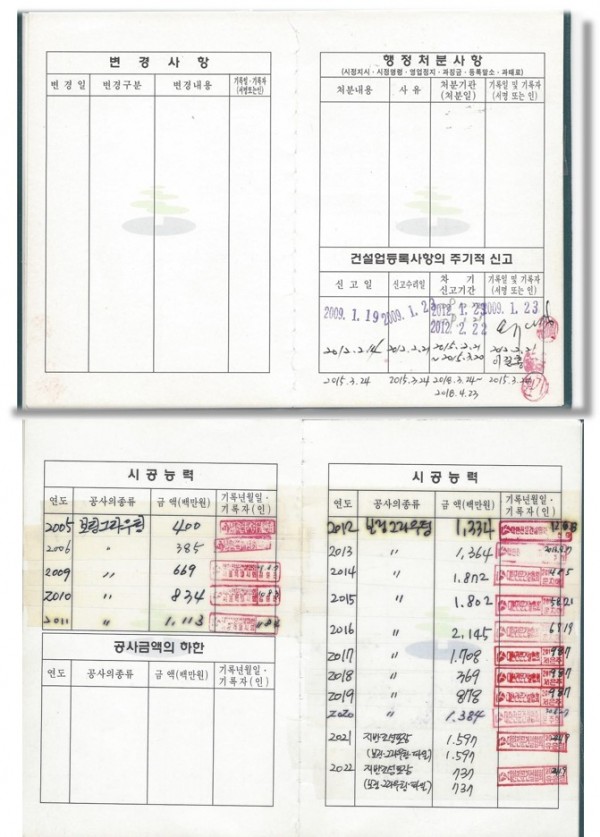 변 경 사 항
변 경 일 변경구분 변경내용 기록일·기록자
(서명또는인)
행정처분사항
(시정지시·시정명령·영업정지·과징금·등록말소·과태료)
처분내용 사 유 처분기관 기록일 및 기록자
(처분일) (서명 또는 인)
건설업등록사항의 주기적 신고
신 고 일 신고수리일 차 기 기록일 및 기록자
신고기간 (서명 또는 인)
2009. 1. 19 2009. 1. 23 2012. 1. 23 2009. 1. 23
2012. 2. 22
2012.2.14 2012.2.21 2015.2.21 2012.2.21
~2015.3.20
2015.3.24 2015.3.24 2018.3.24~ 2015.3.24
2018.4.23
시 공 능 력
연도 공사의종류 금 액(백만원) 기록년월일·
기록자(인)
2005 보링그라우팅 400
2006 〃 385
2009 〃 669
2010 〃 834
2011 〃 1,113
공사금액의 하한
연도 공사의종류 금 액(백만원) 기록년월일·
기록자(인)
시 공 능 력
연도 공사의종류 금 액(백만원) 기록년월일·
기록자(인)
2012 보링그라우팅 1,334
2013 〃 1,364
2014 〃 1.872
2015 〃 1.802
2016 〃 2.145
2017 〃 1.708
2018 〃 369
2019 〃 878
2020 〃 1.384
2021 지반조성포장 1.597
(보링·그라우팅·파일) 1.597
2022 지반조성포장 737
(보링·그라우팅·파일) 737